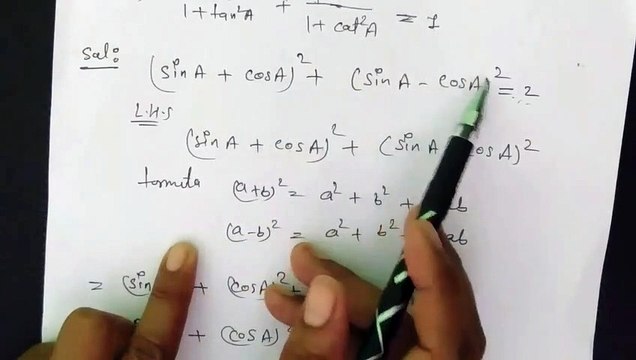 1 + tan²A + 1 + cot²A = 1
Sol:
(sin A + cos A)² + (sin A - cos A)² = 2
L.H.S
(sin A + cos A)² + (sin A cos A)²
formula (a+b)² = a² + b² + ab
(a-b)² = a² + b² ab
= (sin + (cos A)² +
+ (cos A)